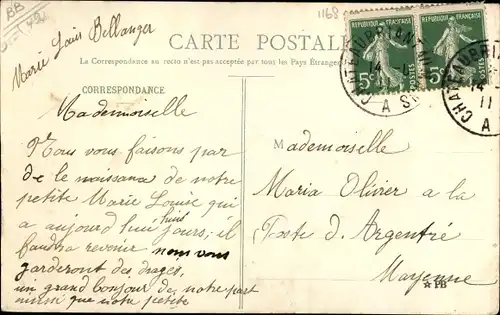 BB
1168
Marie Louis Bellanger
CARTE POSTALE
La Correspondance au recto n'est pas acceptée par tous les Pays Étrangers
CORRESPONDANCE
RÉPUBLIQUE FRANÇAISE
RÉPUBLIQUE FRANÇAISE
5c
POSTES
5c
POSTES
CHATEAUBRIANT
14
11
A
CHATEAUBRIANT
14
11
A
Mademoiselle
Nous vous faisons par
de le naissance de notre
petite Marie Louise qui
a aujourd hui huit jours; il
faudra revenir nous vous
garderont des drages,
un grand bonjour de notre part
ainssi que notre petite
Mademoiselle
Maria Olivier a la
Poste d'Argentré
Mayenne
FB